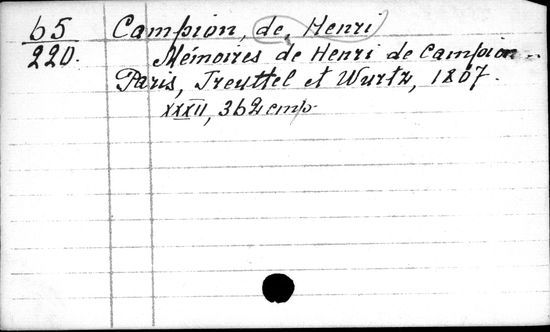 65 Campion, de, Henri
220. Mémoires de Henri de Campion..
Paris, Treuttel et Wurtz, 1807.
XXXII, 362 стр.